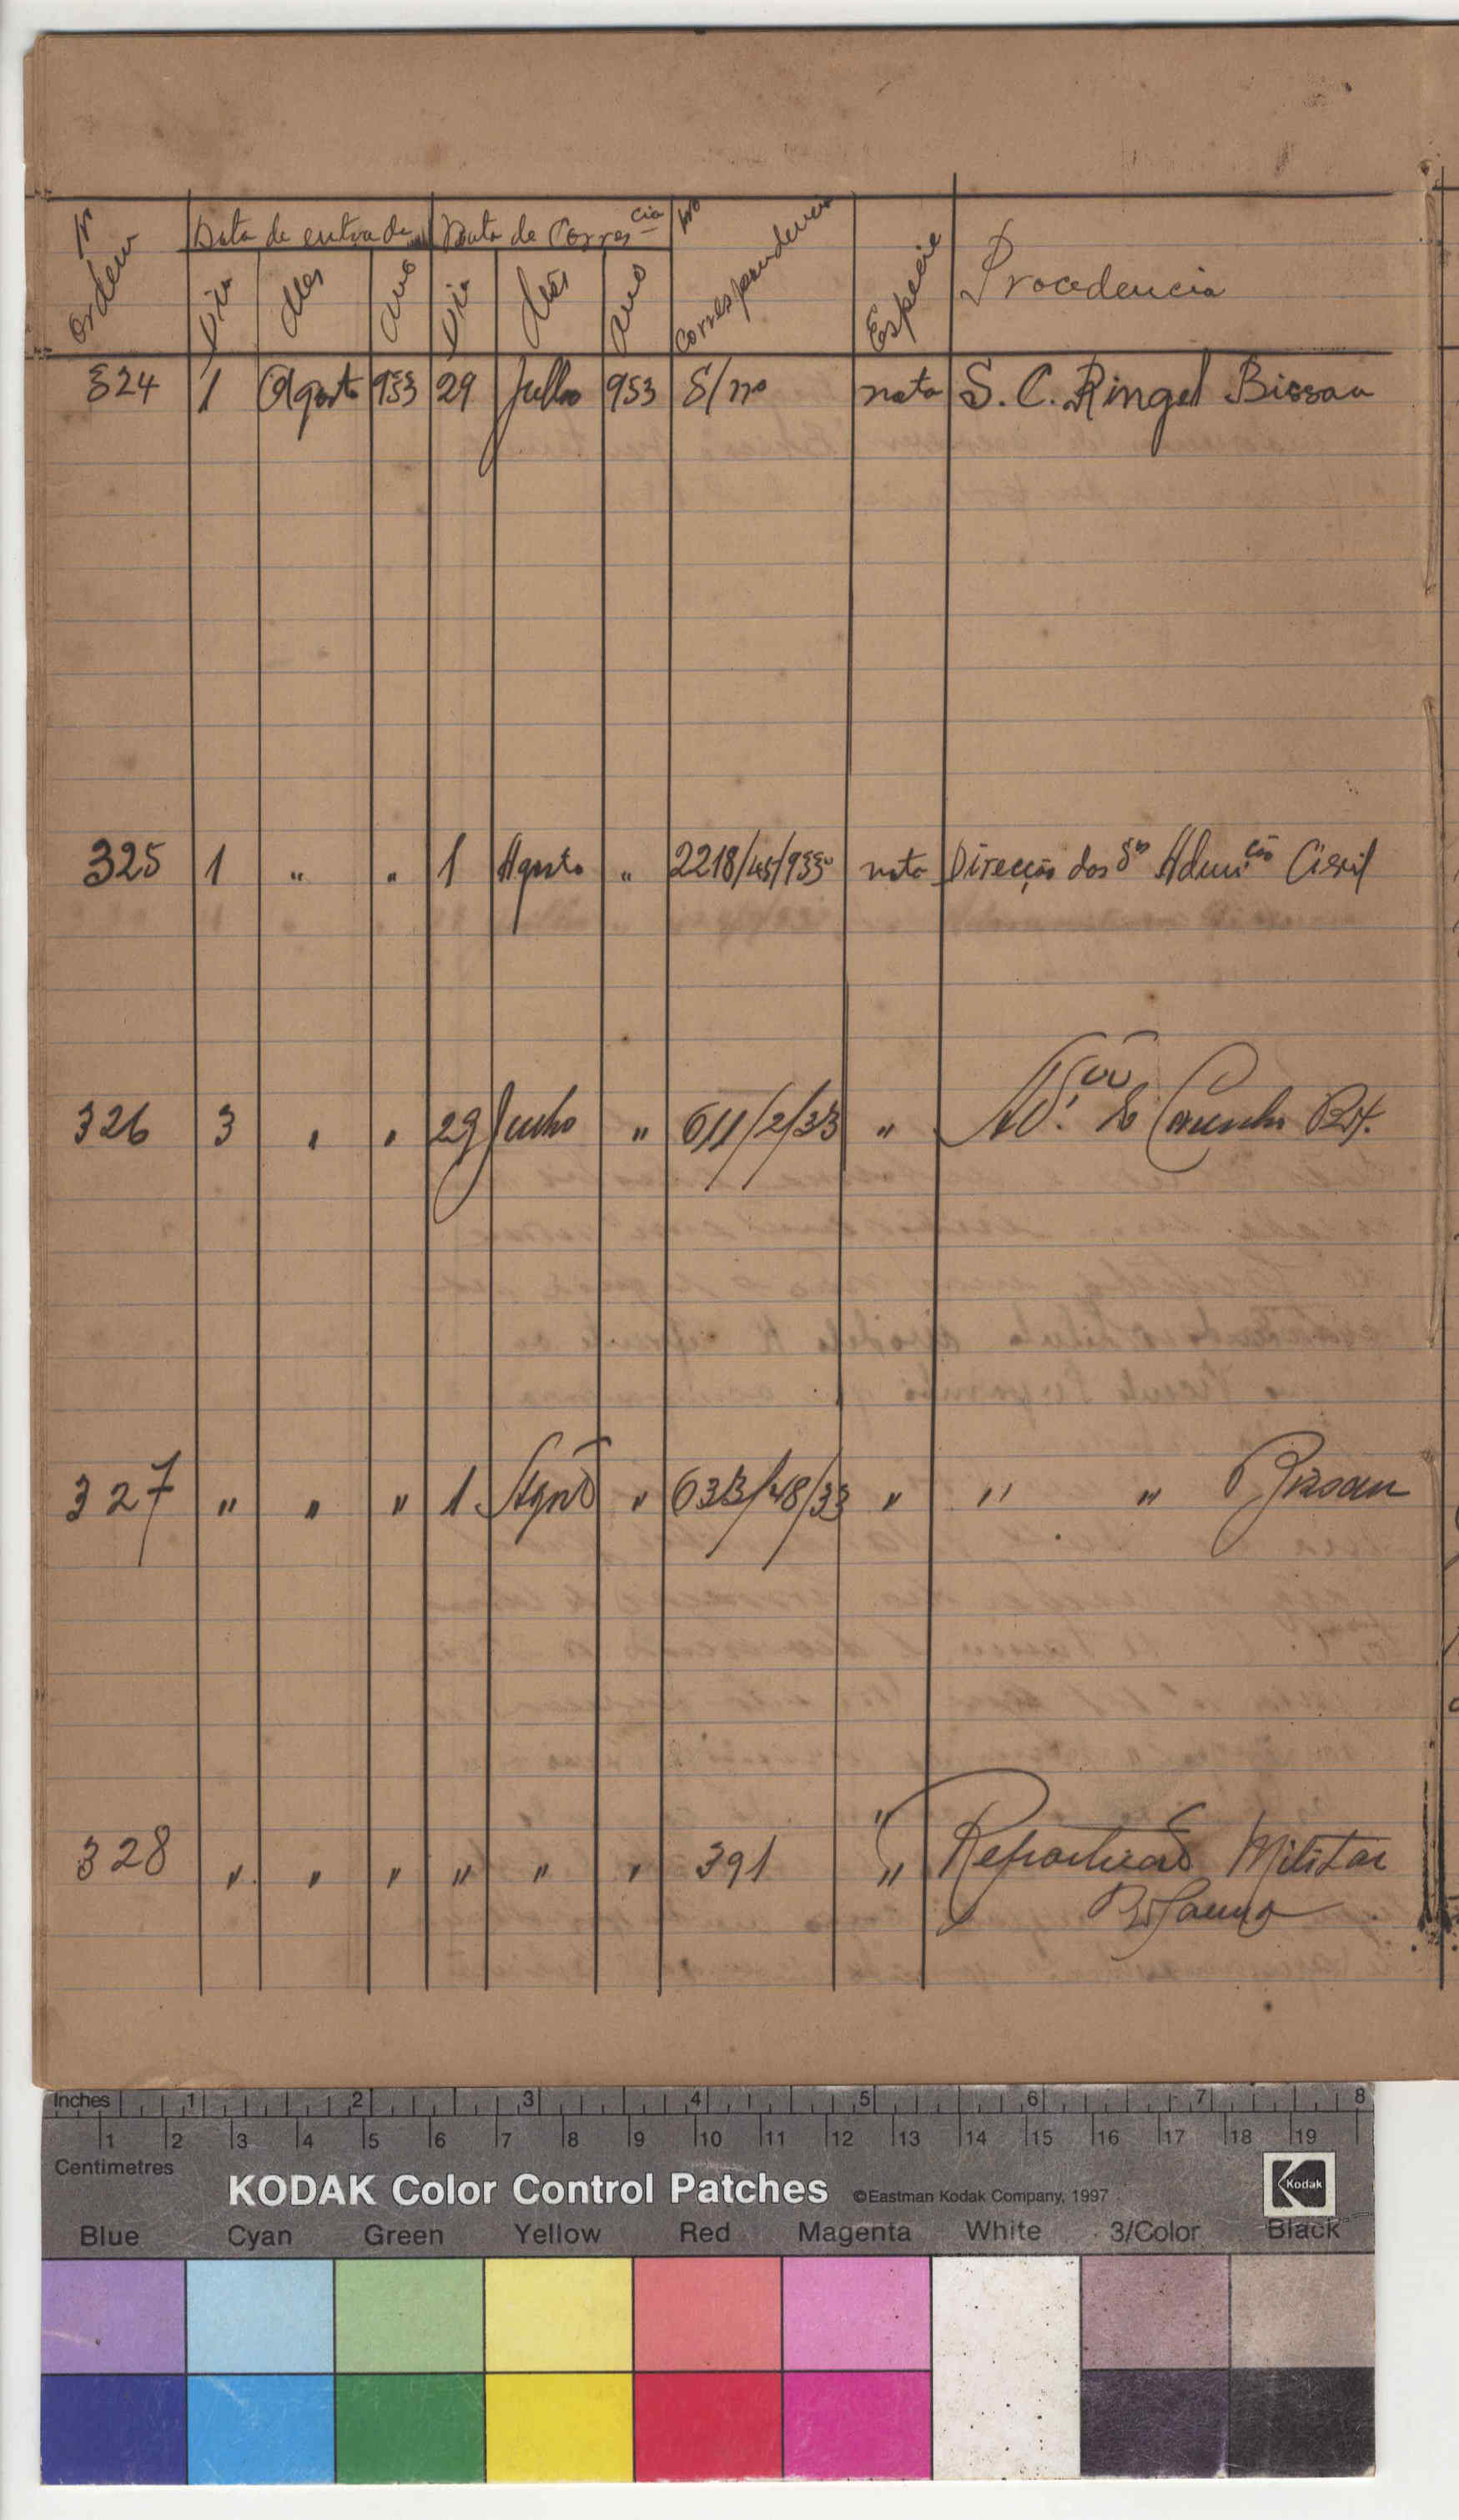 Nº ordem Data de entrada Data de Corres.cia Nº Correspondencia Especie Procedencia
Dia Mês Ano Dia Mês Ano
324 1 Agosto 953 29 Julho 953 S/nº nota S. C. Ringel Bissau
325 1 " " 1 Agosto " 2218/45/953 nota Direcção dos Sos Admi.ção Civil
326 3 " " 29 Junho " 611/2/53 "
327 " " " 1 Agosto " 633/48/53 " " " Bissau
328 " " " " " " 391 " Repartição Militar
Inches 1 2 3 4 5 6 7 8
1 2 3 4 5 6 7 8 9 10 11 12 13 14 15 16 17 18 19
Centimetres
KODAK Color Control Patches ©Eastman Kodak Company, 1997 Kodak
Blue Cyan Green Yellow Red Magenta White 3/Color Black